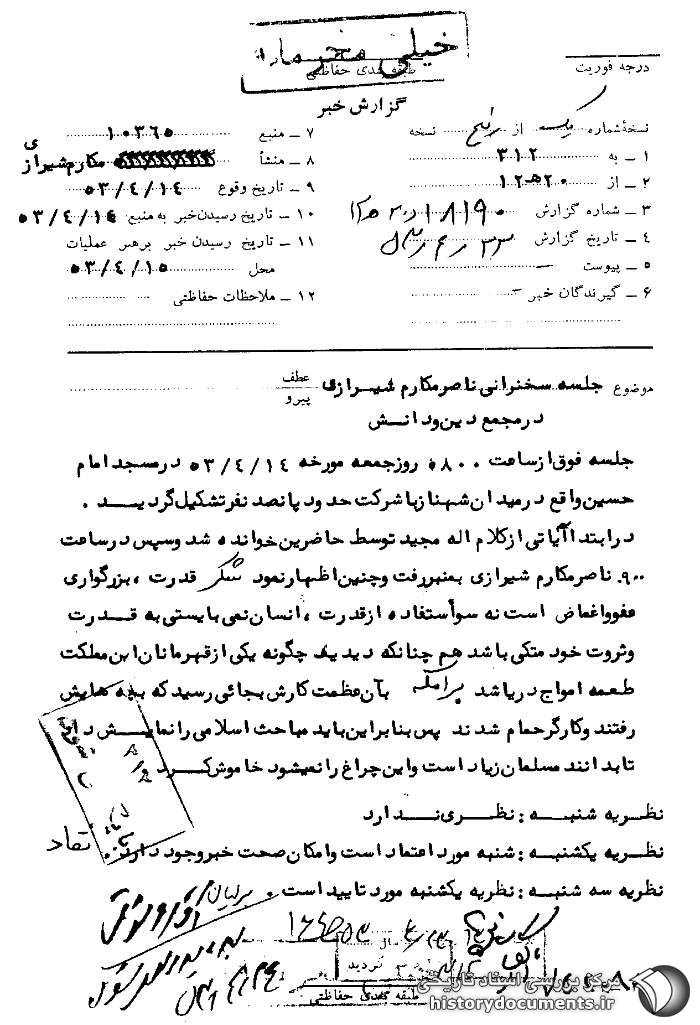 خیلی محرمانه
طبقه بندی حفاظتی
درجه فوریت
گزارش خبر
نسخهٔ شماره یک از پنج نسخه
۱ ـ به ۳۱۲
۲ ـ از ۲۰ هـ ۱۲
۳ ـ شماره گزارش
۴ ـ تاریخ گزارش
۵ ـ پیوست
۶ ـ گیرندگان خبر
۷ ـ منبع ۱۰۳۶۵
۸ ـ منشأ مکارم شیرازی
۹ ـ تاریخ وقوع ۵۳/۴/۱۴
۱۰ ـ تاریخ رسیدن خبر به منبع ۵۳/۴/۱۴
۱۱ ـ تاریخ رسیدن خبر برهبر عملیات
محل ۵۳/۴/۱۵
۱۲ ـ ملاحظات حفاظتی
موضوع جلسه سخنرانی ناصر مکارم شیرازی عطف
پیرو
در مجمع دین و دانش
جلسه فوق از ساعت ۰۸۰۰ روز جمعه مورخه ۵۳/۴/۱۴ در مسجد امام
حسین واقع در میدان شهناز با شرکت حدود پانصد نفر تشکیل گردید .
در ابتدا آیاتی از کلام اله مجید توسط حاضرین خوانده شد و سپس در ساعت
۹۰۰ ناصر مکارم شیرازی بمنبر رفت و چنین اظهار نمود شکر قدرت ، بزرگواری
عفو و اغماض است نه سوأستفاده از قدرت ، انسان نمی بایستی به قدرت
و ثروت خود متکی باشد هم چنانکه دیدید چگونه یکی از قهرمانان این مملکت
طعمه امواج دریا شد برامکه بآن عظمت کارش بجائی رسید که بچه هایش
رفتند و کارگر حمام شدند پس بنابراین باید مباحث اسلامی را نمایش داد
تا بدانند مسلمان زیاد است و این چراغ را نمیشود خاموش کرد
نظریه شنبه : نظری ندارد
نظریه یکشنبه : شنبه مورد اعتماد است و امکان صحت خبر وجود دارد
نظریه سه شنبه : نظریه یکشنبه مورد تایید است .
طبقه بندی حفاظتی
مرکز بررسی اسناد تاریخی
historydocuments.ir